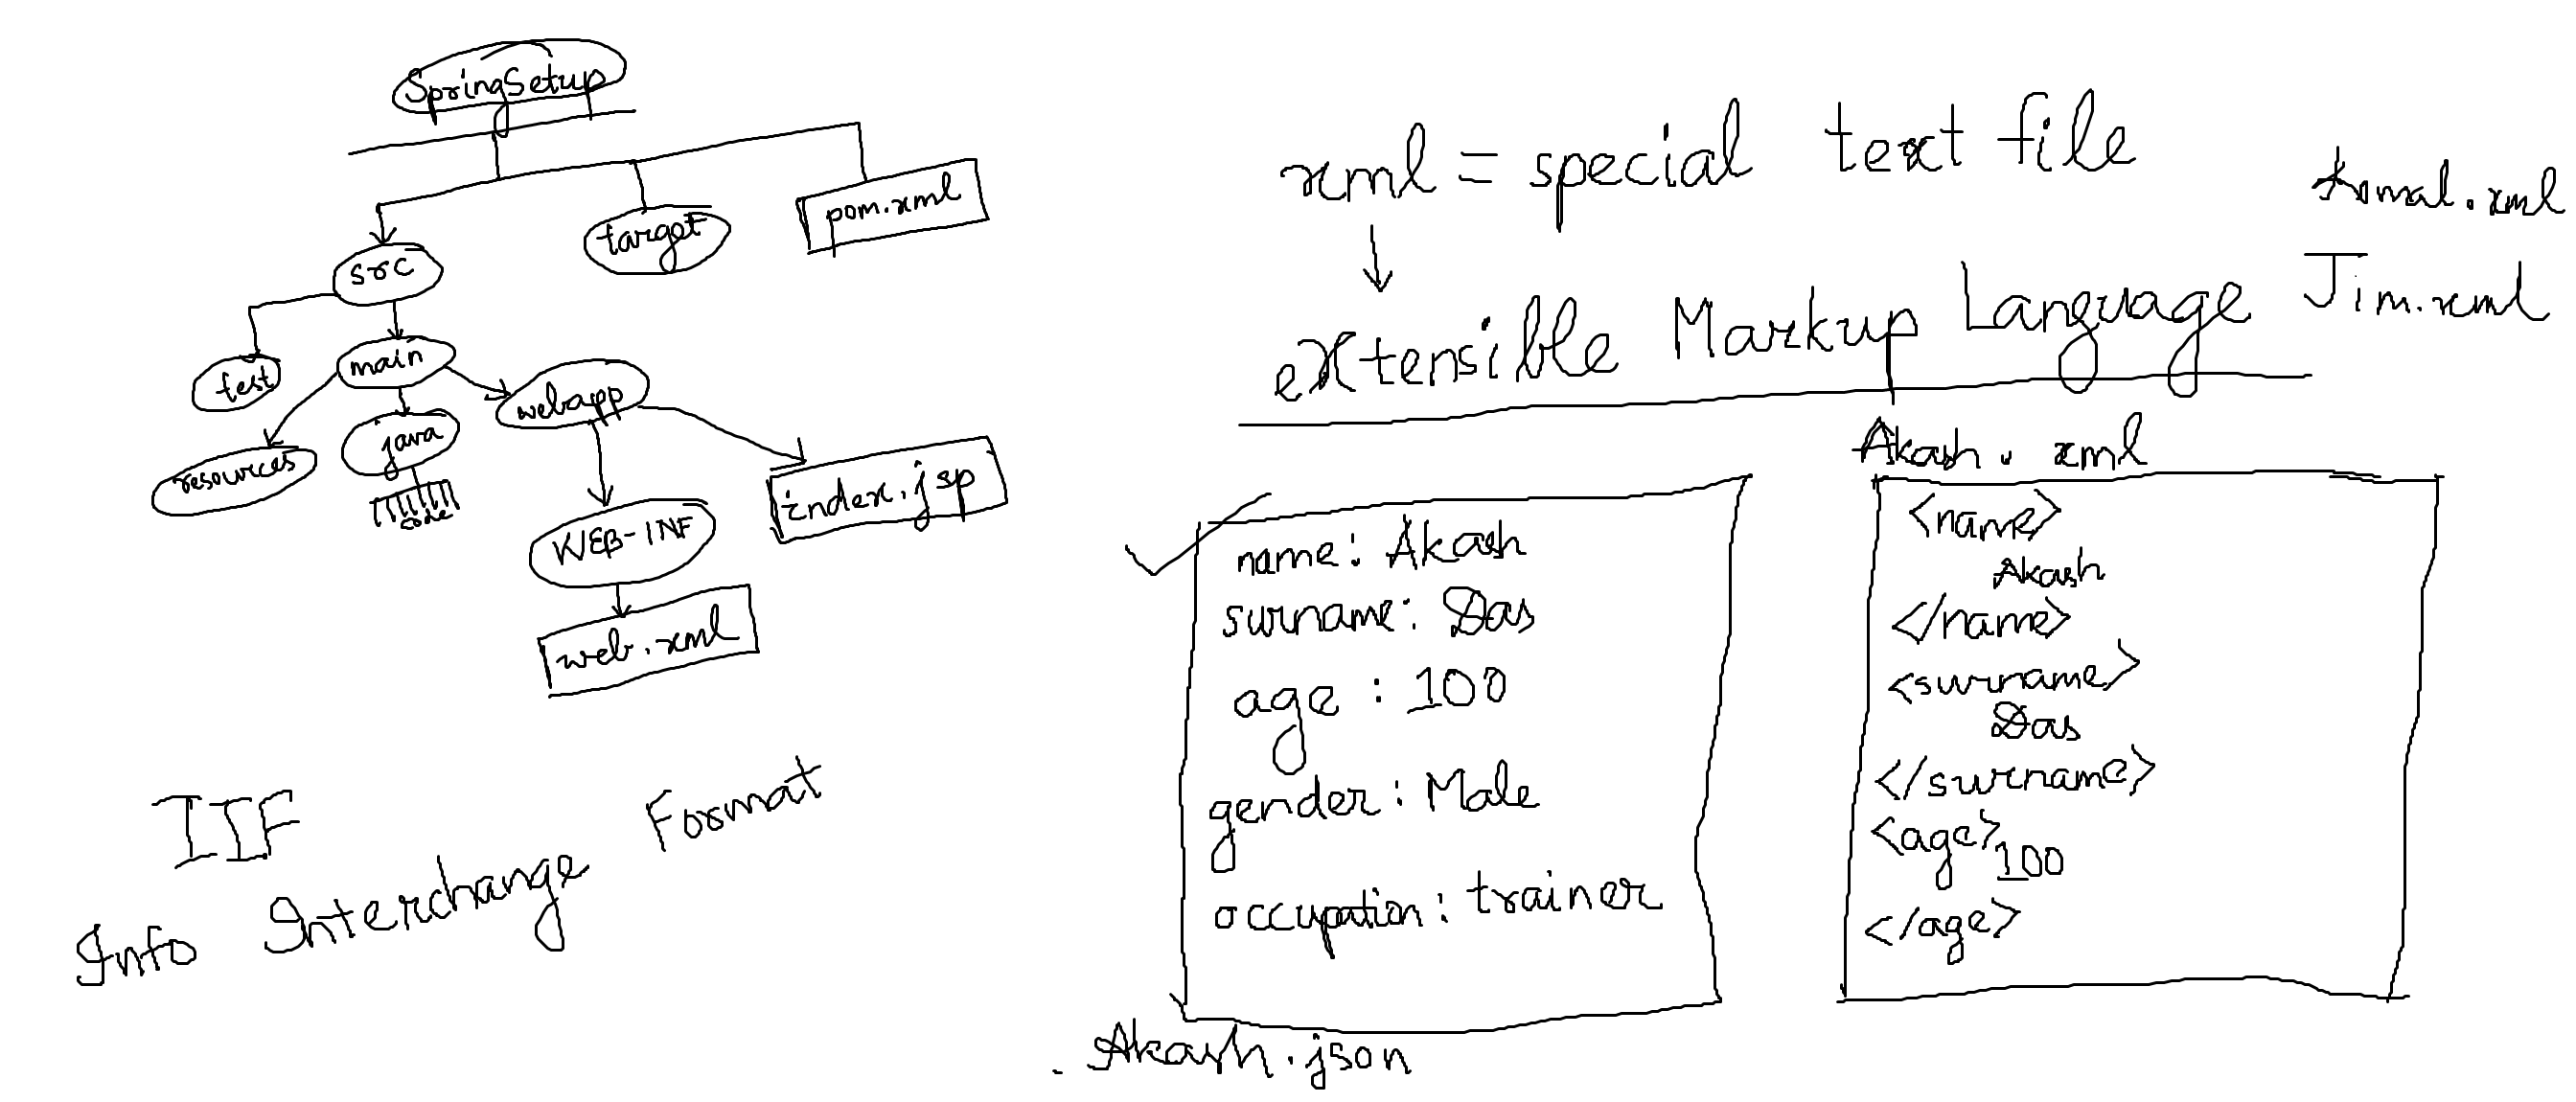 SpringSetup
src
target
pom.xml
test
main
webapp
resources
java
code
index.jsp
WEB-INF
web.xml
IIF
Info Interchange Format
xml = special text file
eXtensible Markup Language
.xml
Jim.xml
name: Akash
surname: Das
age : 100
gender: Male
occupation: trainer
Akash.json
Akash. xml
<name>
Akash
</name>
<surname>
Das
</surname>
<age>
100
</age>